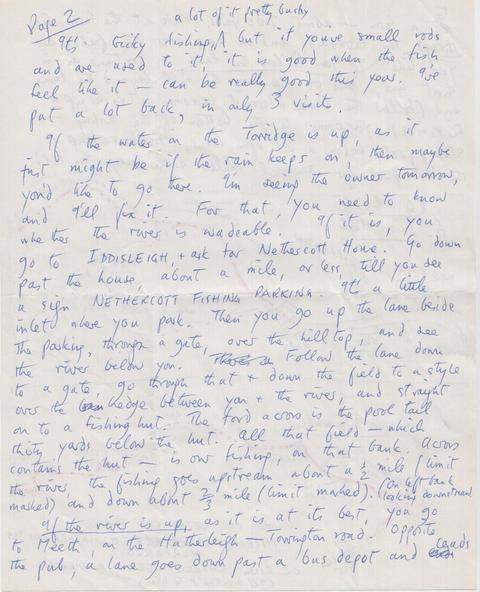 Page 2
a lot of it pretty bushy
It's tricky fishing, but if you've small rods
and are used to it, it is good when the fish
feel like it — can be really good this year. I've
put a lot back, in only 3 visits.
If the water on the Torridge is up, as it
just might be if the rain keeps on, then maybe
you'd like to go there. I'm seeing the owner tomorrow,
and I'll fix it. For that, you need to know
whether the river is wadeable. If it is, you
go to IDDISLEIGH, + ask for Nethercott House. Go down
past the house, about a mile, or less, till you see
a sign NETHERCOTT FISHING PARKING. It's a little
inlet where you park. Then you go up the lane beside
the parking, through a gate, over the hill top, and see
the river below you. Follow the lane down
to a gate, go through that + down the field to a style
over the hedge between you + the river, and straight
on to a fishing hut. The ford across is the pool tail
thirty yards below the hut. All that field — which
contains the hut — is our fishing, on that bank. Across
the river, the fishing goes upstream about a ½ mile (limit
marked) and down about ⅔ mile (limit marked). (on left bank
looking downstream)
If the river is up, as it is at its best, you go
to Meeth, on the Hatherleigh — Torrington road. Opposite
the pub, a lane goes down past a bus depot and leads